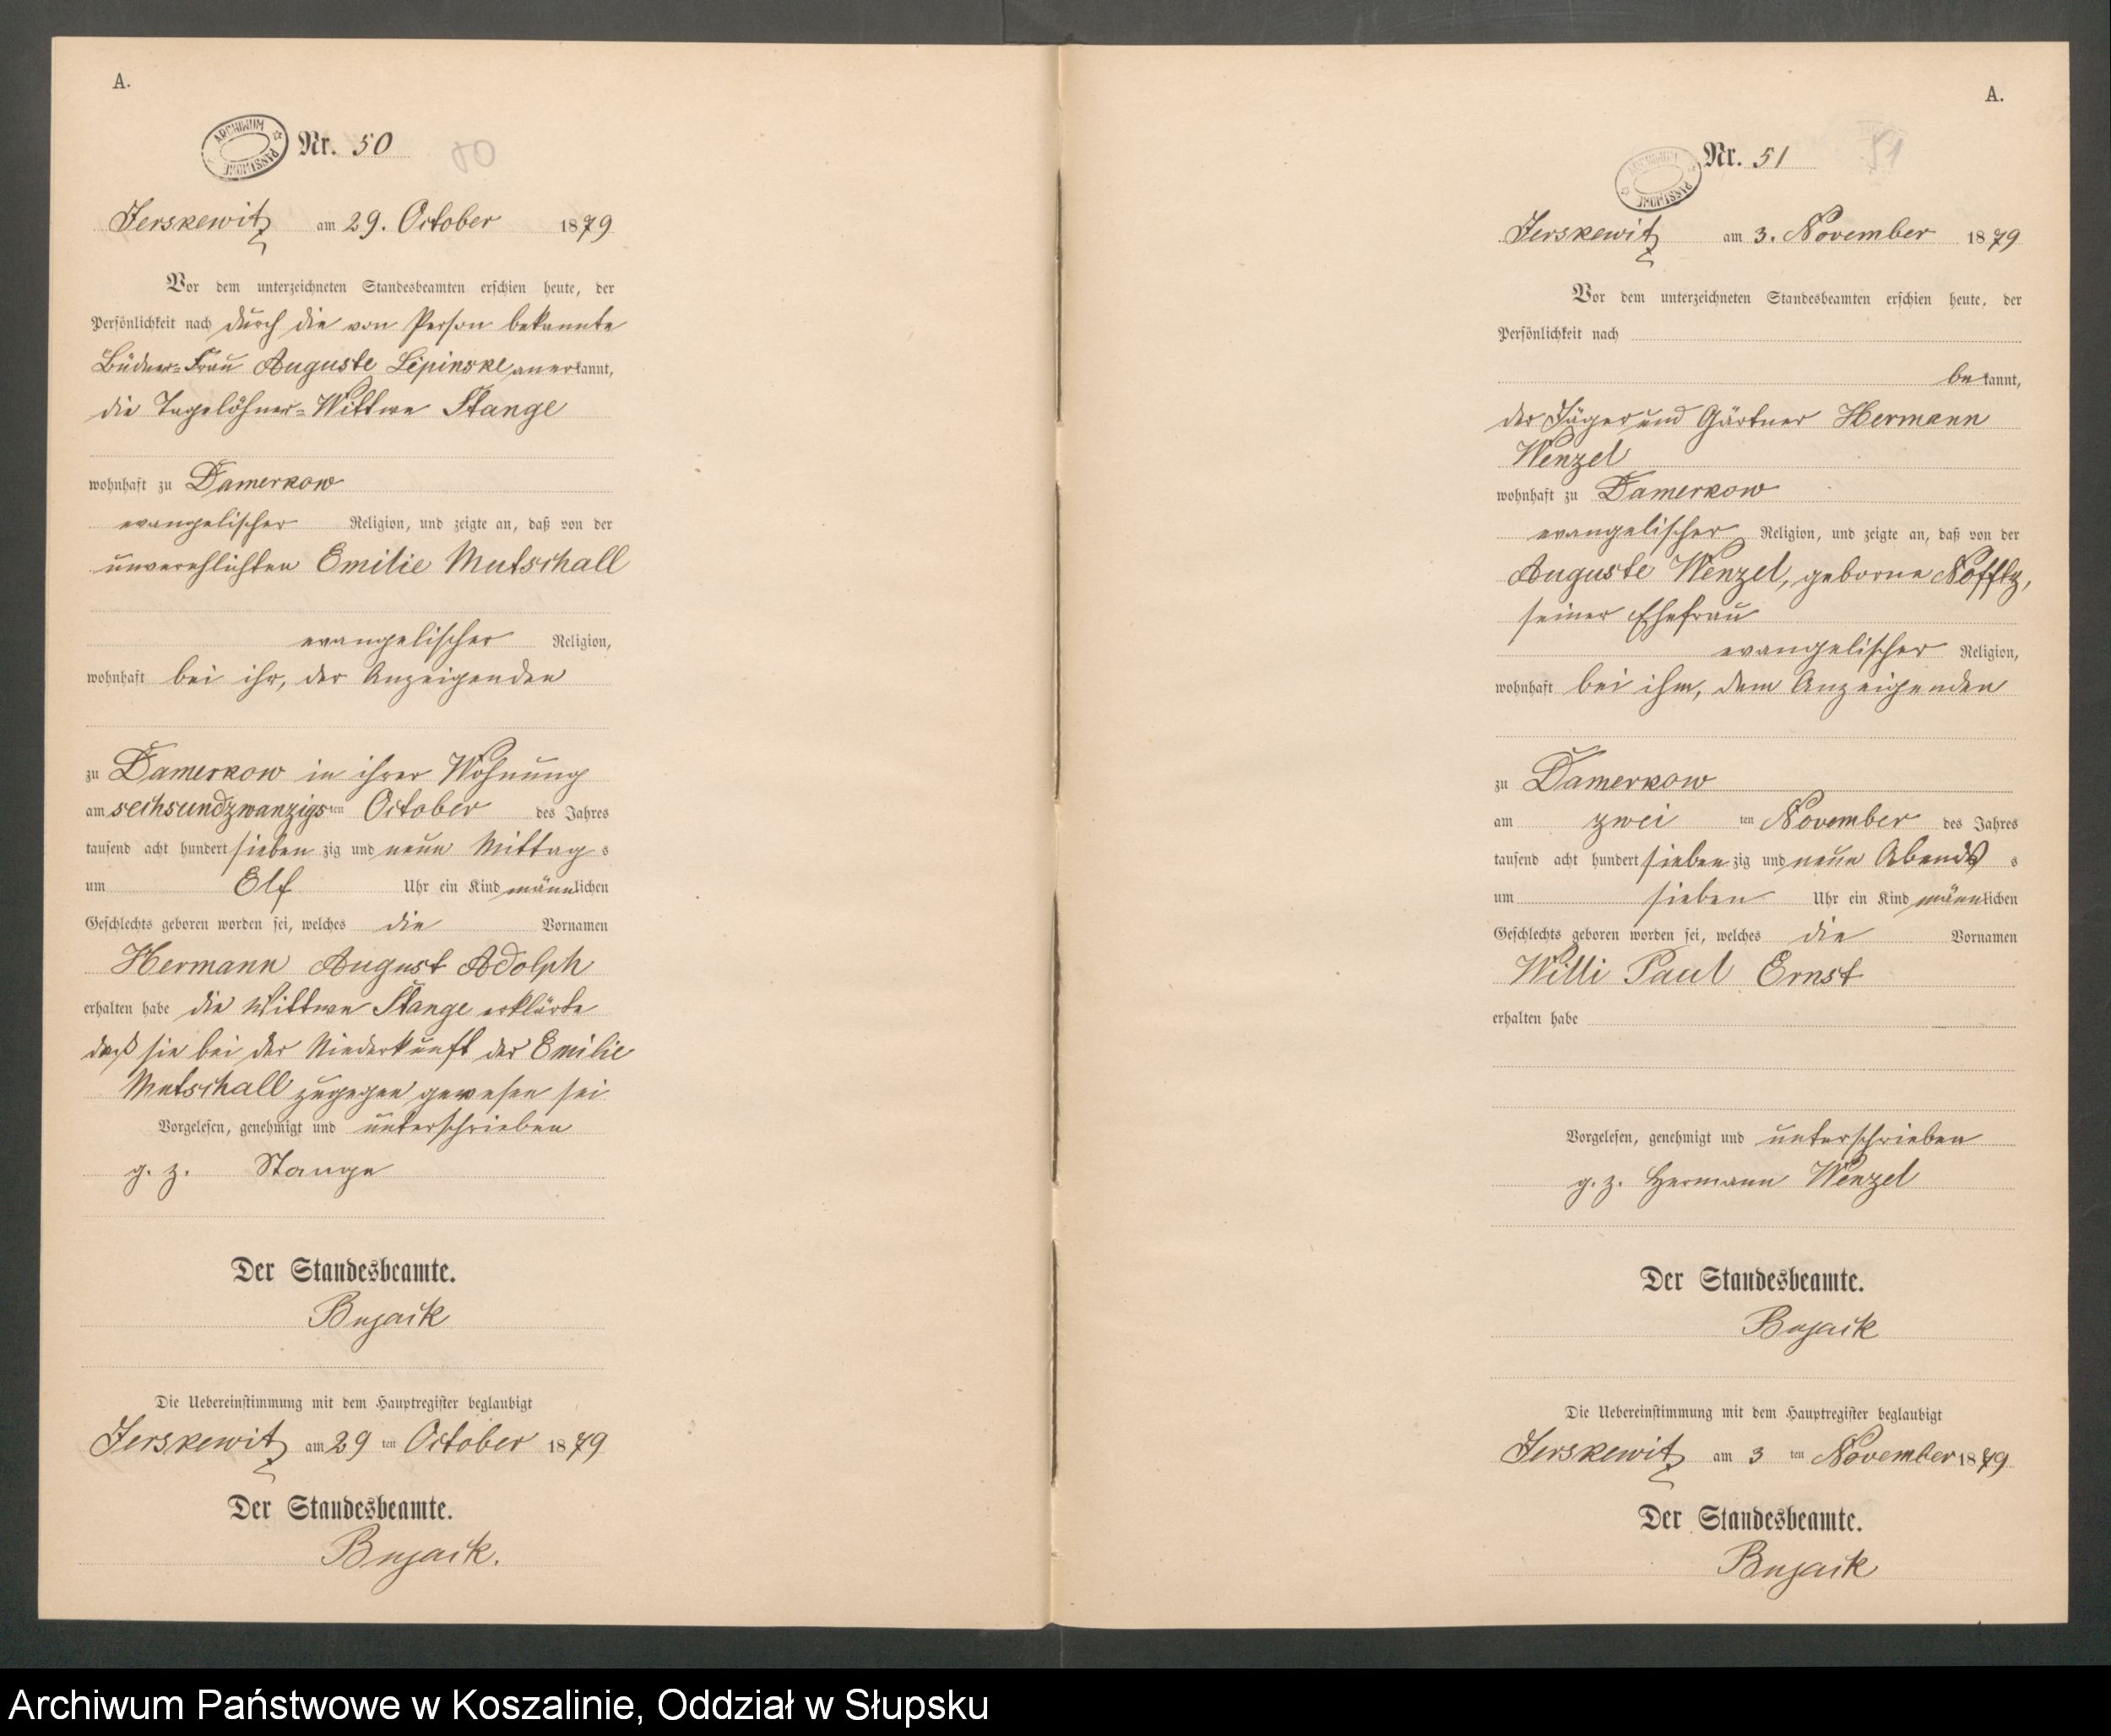 A.
ARCHIWUM PAŃSTWOWE
Nr. 50
50
Jerskewitz am 29. October 1879
Vor dem unterzeichneten Standesbeamten erschien heute, der
Persönlichkeit nach durch die von Person bekannte
Büdner-Frau Auguste Lipinske anerkannt,
die Tagelöhner-Wittwe Stange
wohnhaft zu Damerkow
evangelischer Religion, und zeigte an, daß von der
unverehlichten Emilie Mutschall
evangelischer Religion,
wohnhaft bei ihr, der Anzeigenden
zu Damerkow in ihrer Wohnung
am sechsundzwanzigsten October des Jahres
tausend acht hundert siebenzig und neun Mittags
um Elf Uhr ein Kind männlichen
Geschlechts geboren worden sei, welches die Vornamen
Hermann August Adolph
erhalten habe die Wittwe Stange erklärte
daß sie bei der Niederkunft der Emilie
Mutschall zugegen gewesen sei
Vorgelesen, genehmigt und unterschrieben
g. z. Stange
Der Standesbeamte.
Bujack
Die Uebereinstimmung mit dem Hauptregister beglaubigt
Jerskewitz am 29 ten October 1879
Der Standesbeamte.
Bujack.
A.
ARCHIWUM PAŃSTWOWE
Nr. 51
51
Jerskewitz am 3. November 1879
Vor dem unterzeichneten Standesbeamten erschien heute, der
Persönlichkeit nach
bekannt,
der Jäger und Gärtner Hermann
Wenzel
wohnhaft zu Damerkow
evangelischer Religion, und zeigte an, daß von der
Auguste Wenzel, geborne
seiner Ehefrau
evangelischer Religion,
wohnhaft bei ihm, dem Anzeigenden
zu Damerkow
am zwei ten November des Jahres
tausend acht hundert siebenzig und neun Abends s
um sieben Uhr ein Kind männlichen
Geschlechts geboren worden sei, welches die Vornamen
Willi Paul Ernst
erhalten habe
Vorgelesen, genehmigt und unterschrieben
g. z. Hermann Wenzel
Der Standesbeamte.
Bujack
Die Uebereinstimmung mit dem Hauptregister beglaubigt
Jerskewitz am 3 ten November 1879
Der Standesbeamte.
Bujack
Archiwum Państwowe w Koszalinie, Oddział w Słupsku